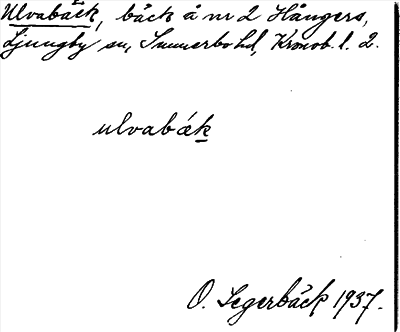 Ulvabäck, bäck å nr 2 Hångers,
Ljungby sn, Sunnerbo hd, Kronob. l. 2.
ulvabäk
O. Segerbäck 1937.